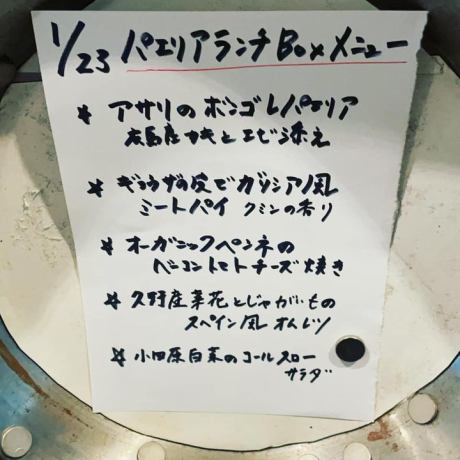 1/23 パエリアランチBoxメニュー
* アサリのボンゴレパエリア
広島産カキとエビ添え
* ギョウザの皮でガリシア風
ミートパイ クミンの香り
* オーガニックペンネの
ベーコントマトチーズ焼き
* 久野産菜花とじゃがいもの
スペイン風オムレツ
* 小田原白菜のコールスロー
サラダ